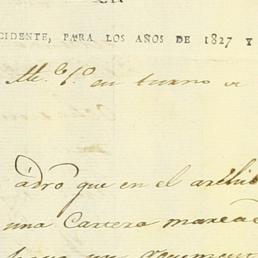 CIDENTE, PARA LOS AÑOS DE 1827 Y
Alc.e 1.o en turno
adro que en el archi
una Cartera marca